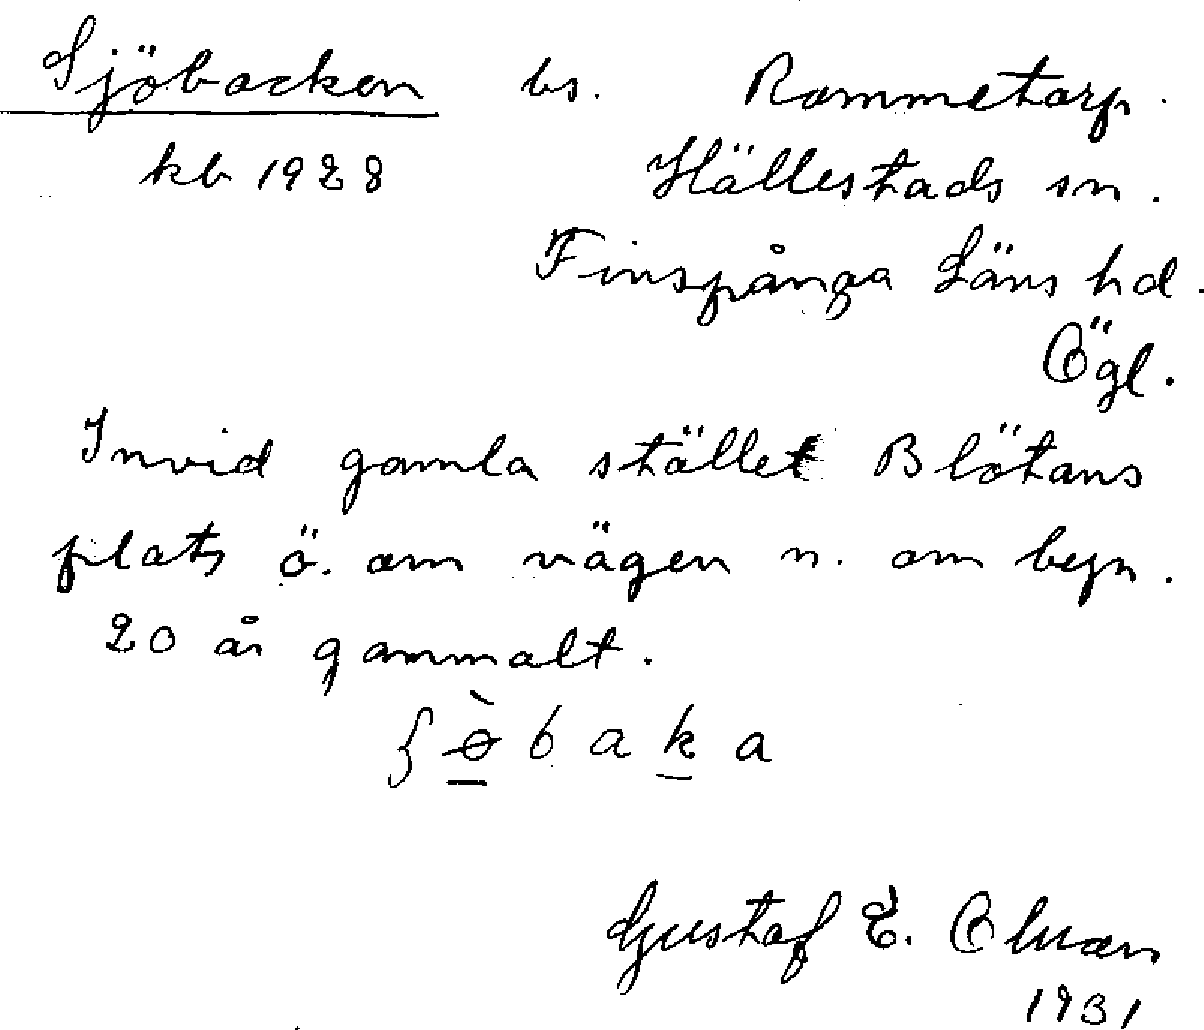 Sjöbacken bs. Rammetorp.
kb 1928 Hällestads sn.
Finspånga Läns hd.
Ögl.
Invid gamla stället Blötans
plats ö. om vägen n. om byn.
20 år gammalt.
ʃɵ̀baka
Gustaf E. Olsson
1931